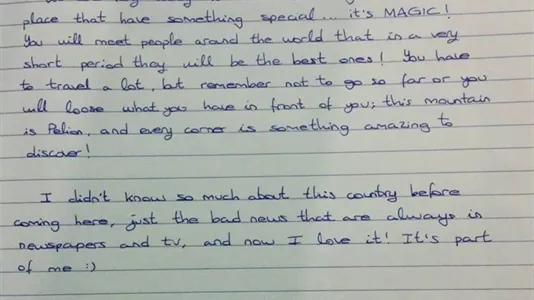 place that have something special... it's MAGIC!
You will meet people around the world that in a very
short period they will be the best ones! You have
to travel a lot, but remember not to go so far or you
will loose what you have in front of you; this mountain
is Pelion, and every corner is something amazing to
discover!
I didn't know so much about this country before
coming here, just the bad news that are always in
newspapers and tv, and now I love it! It's part
of me :)